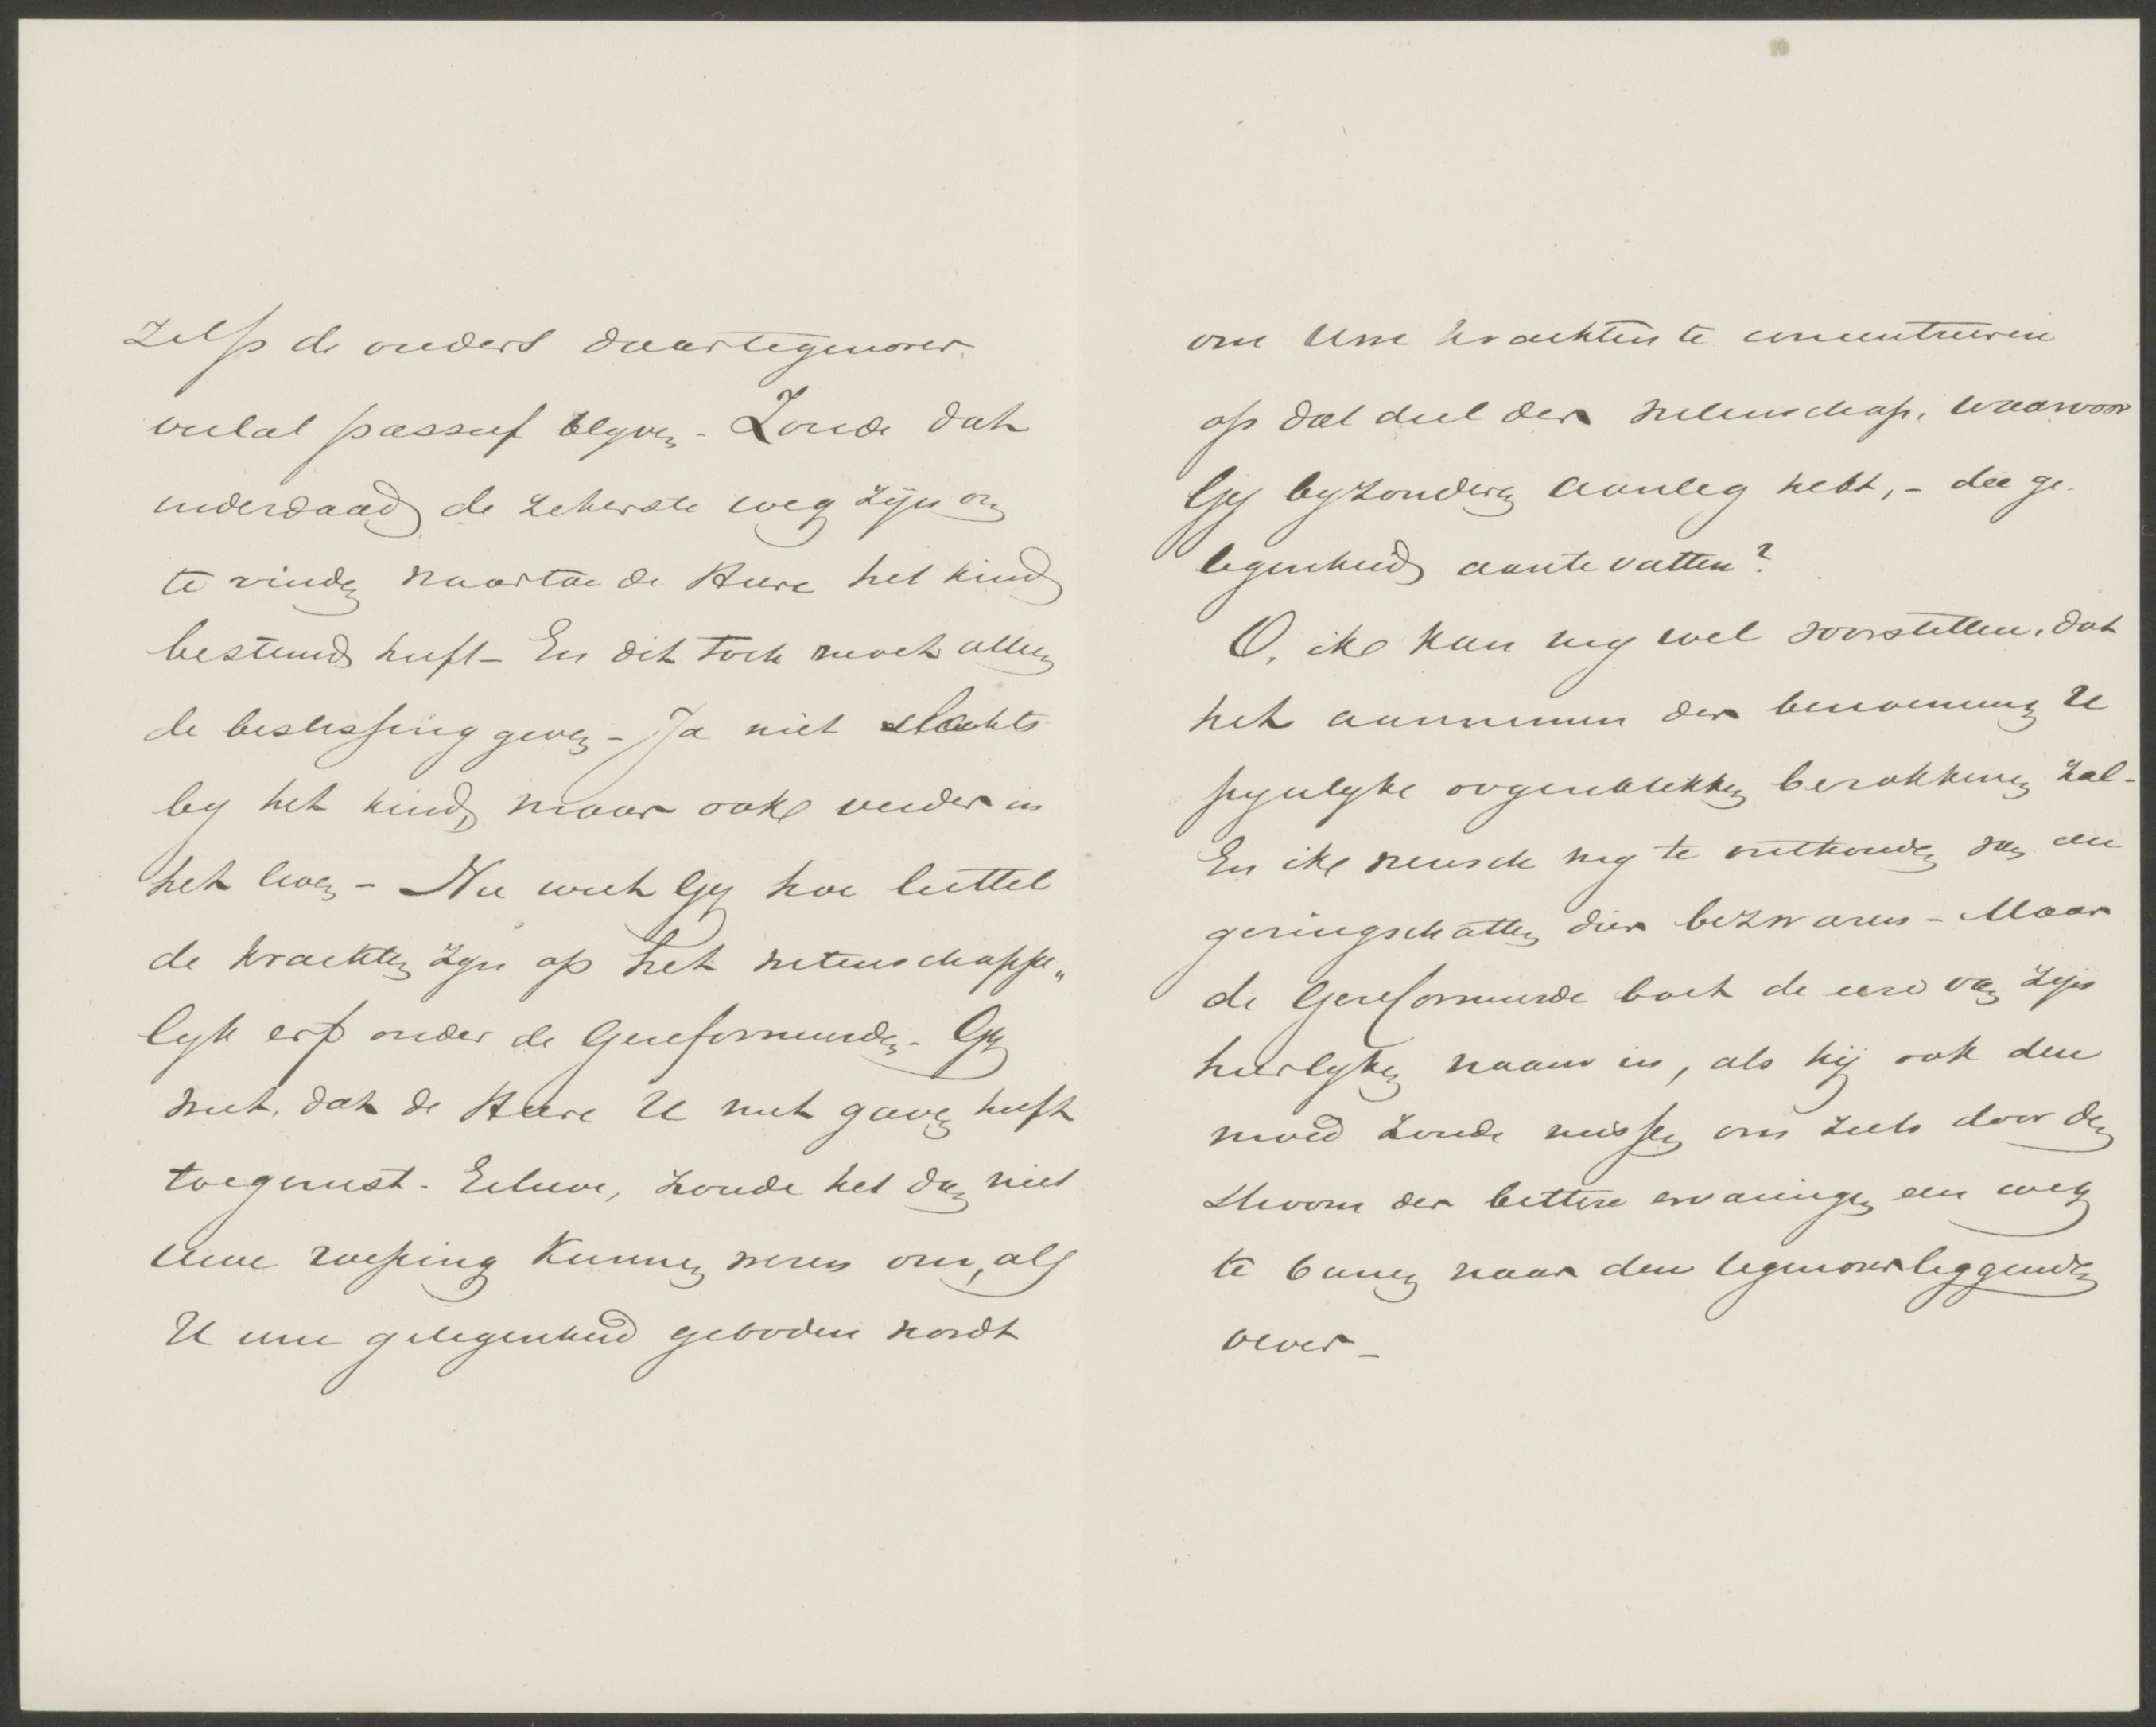 zelfs de ouders daartegenover
veelal passief blyven - Zoude dat
inderdaad de zekerste weg zijn om
te vinden waartoe de Heere het kind
bestemd heeft - En dit toch moet alleen
de beslissing geven - Ja niet slechts
by het kind, maar ook verder in
het leven - Nu weet Gy hoe luttel
de krachten zyn op het wetenschappe„
lyk erf onder de Gereformeerden - Gy
weet, dat de Heere U met gaven heeft
toegerust - Eilieve, zoude het dan niet
Uwe roeping kunnen wezen om, als
U eene gelegenheid geboden wordt
om Uwe krachten te concentreeren
op dat deel der wetenschap, waarvoor
Gy byzonderen aanleg hebt, - die ge-
legenheid aantevatten?
O, ik kan my wel voorstellen, dat
het aannemen der benoeming U
pynlyke oogenblikken berokkenen zal -
En ik wensch my te onthouden van een
geringschatten dier bezwaren - Maar
de Gereformeerde boet de eere van zijn
heerlyken naam in, als hij ook den
moed zoude missen om zich door den
stroom der bittere ervaringen een weg
te banen naar den tegenoverliggenden
oever -